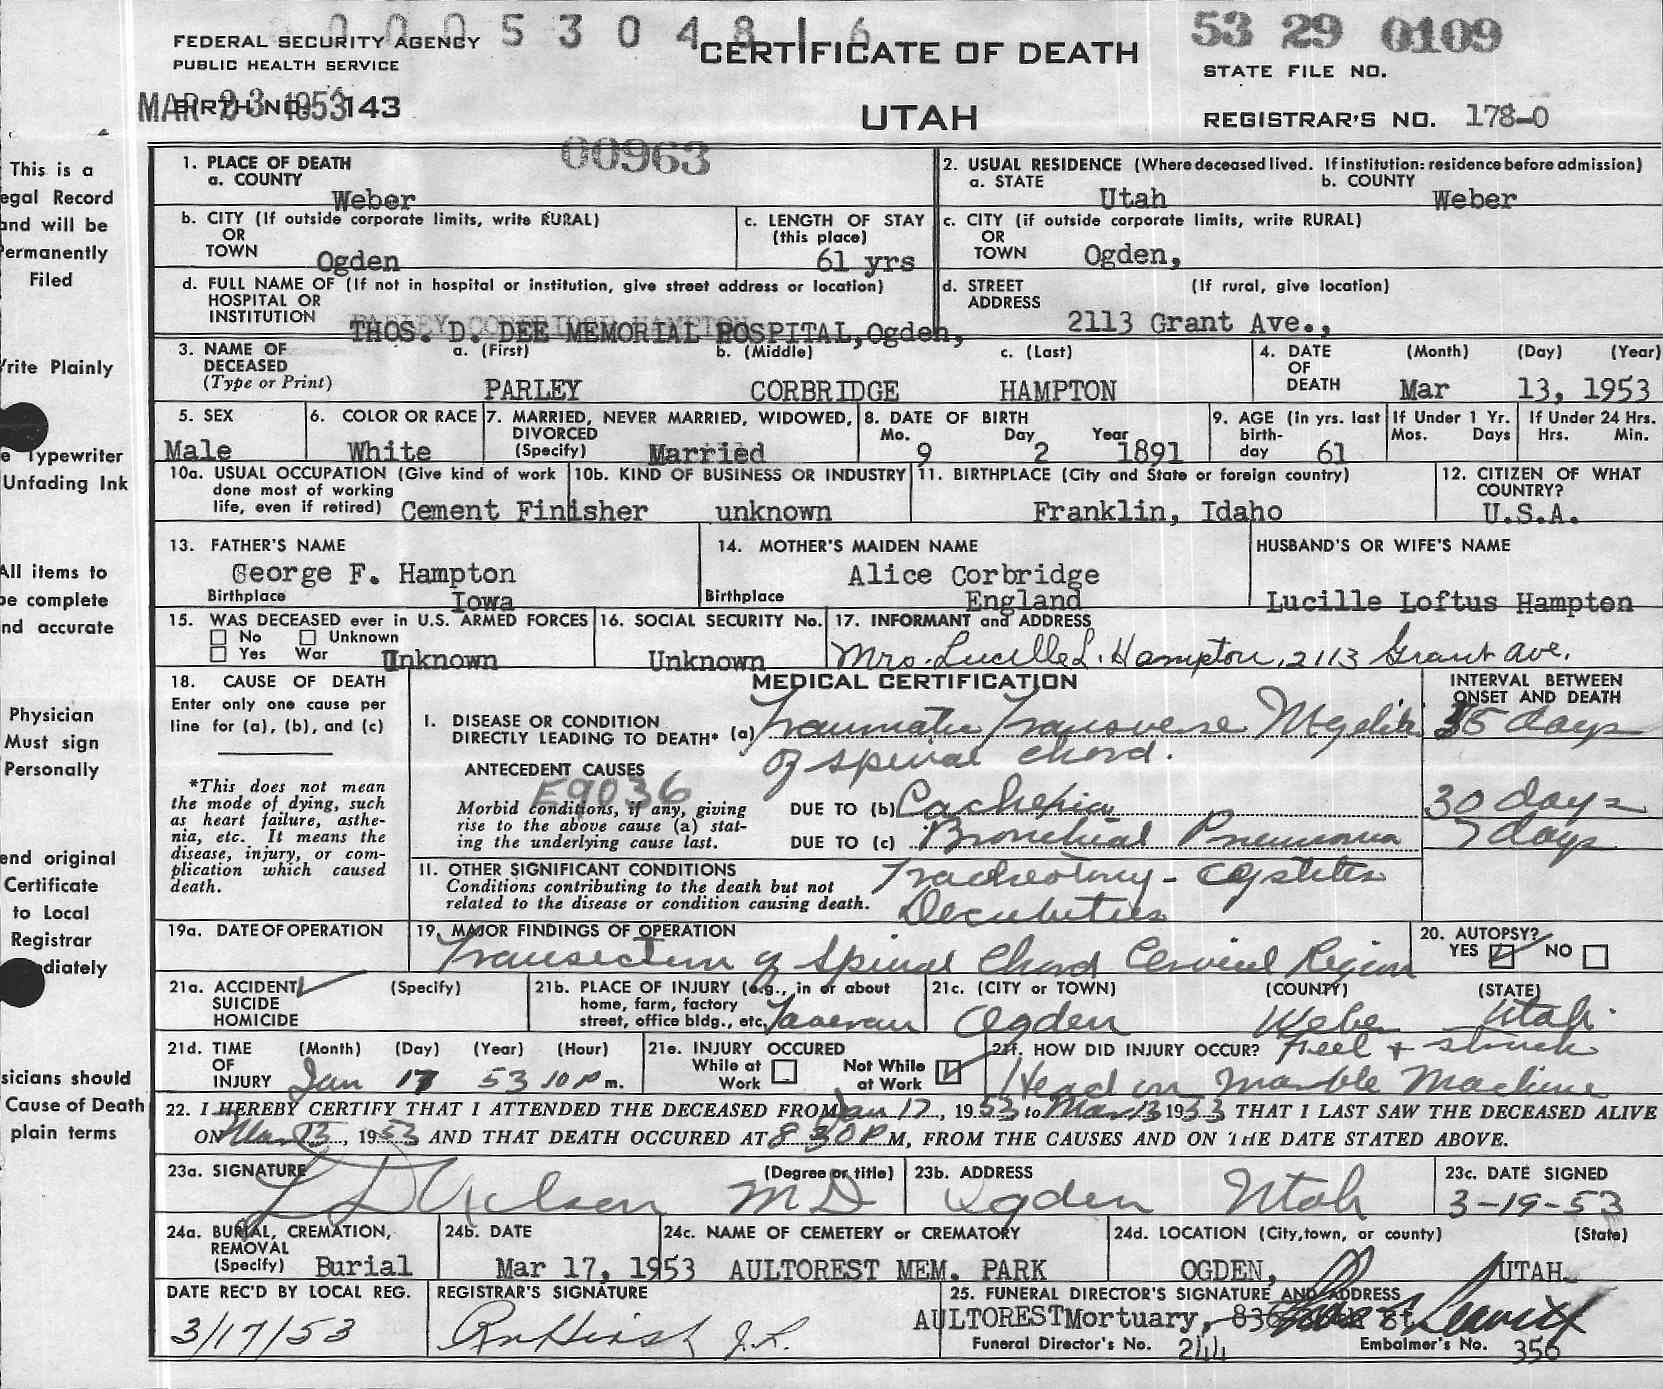 0 0 0 5 3 0 4 8 1 6
53 29 0109
FEDERAL SECURITY AGENCY
PUBLIC HEALTH SERVICE
CERTIFICATE OF DEATH
STATE FILE NO.
MAR 23 1953
BIRTH NO. 143
UTAH
REGISTRAR'S NO. 178-0
00963
This is a
egal Record
and will be
Permanently
Filed
1. PLACE OF DEATH
a. COUNTY
Weber
2. USUAL RESIDENCE (Where deceased lived. If institution: residence before admission)
a. STATE Utah b. COUNTY Weber
b. CITY (If outside corporate limits, write RURAL)
OR
TOWN Ogden
c. LENGTH OF STAY
(this place)
61 yrs
c. CITY (if outside corporate limits, write RURAL)
OR
TOWN Ogden,
d. FULL NAME OF (If not in hospital or institution, give street address or location)
HOSPITAL OR
INSTITUTION THOS. D. DEE MEMORIAL HOSPITAL, Ogden,
d. STREET (If rural, give location)
ADDRESS 2113 Grant Ave.,
Write Plainly
3. NAME OF DECEASED
(Type or Print)
a. (First) b. (Middle) c. (Last)
PARLEY CORBRIDGE HAMPTON
4. DATE OF DEATH (Month) (Day) (Year)
Mar 13, 1953
e Typewriter
Unfading Ink
5. SEX
Male
6. COLOR OR RACE
White
7. MARRIED, NEVER MARRIED, WIDOWED,
DIVORCED
(Specify) Married
8. DATE OF BIRTH
Mo. Day Year
9 2 1891
9. AGE (in yrs. last
birth-
day 61
If Under 1 Yr.
Mos. Days
If Under 24 Hrs.
Hrs. Min.
10a. USUAL OCCUPATION (Give kind of work
done most of working
life, even if retired) Cement Finisher
10b. KIND OF BUSINESS OR INDUSTRY
unknown
11. BIRTHPLACE (City and State or foreign country)
Franklin, Idaho
12. CITIZEN OF WHAT
COUNTRY?
U.S.A.
All items to
be complete
nd accurate
13. FATHER'S NAME
George F. Hampton
Birthplace Iowa
14. MOTHER'S MAIDEN NAME
Alice Corbridge
Birthplace England
HUSBAND'S OR WIFE'S NAME
Lucille Loftus Hampton
15. WAS DECEASED ever in U.S. ARMED FORCES
No Unknown
Yes War Unknown
16. SOCIAL SECURITY No.
Unknown
17. INFORMANT and ADDRESS
Mrs. Lucille L. Hampton, 2113 Grant Ave.
Physician
Must sign
Personally
18. CAUSE OF DEATH
Enter only one cause per
line for (a), (b), and (c)
*This does not mean
the mode of dying, such
as heart failure, asthe-
nia, etc. It means the
disease, injury, or com-
plication which caused
death.
MEDICAL CERTIFICATION
INTERVAL BETWEEN
ONSET AND DEATH
I. DISEASE OR CONDITION
DIRECTLY LEADING TO DEATH* (a) Traumatic Transverse Myelitis
of spinal chord.
days
ANTECEDENT CAUSES
E9036
Morbid conditions, if any, giving
rise to the above cause (a) stat-
ing the underlying cause last.
DUE TO (b) Cachexia 30 days
DUE TO (c) Bronchial Pneumonia 7 days
II. OTHER SIGNIFICANT CONDITIONS
Conditions contributing to the death but not
related to the disease or condition causing death.
Tracheotomy - Cystitis
Decubities
end original
Certificate
to Local
Registrar
diately
19a. DATE OF OPERATION
19. MAJOR FINDINGS OF OPERATION
Transection of Spinal Chord Cervical Region
20. AUTOPSY?
YES NO
21a. ACCIDENT (Specify)
SUICIDE
HOMICIDE
21b. PLACE OF INJURY (e.g., in or about
home, farm, factory
street, office bldg., etc. Taveran
21c. (CITY or TOWN) (COUNTY) (STATE)
Ogden Weber Utah
21d. TIME (Month) (Day) (Year) (Hour)
OF
INJURY Jan 17 53 10 P m.
21e. INJURY OCCURED
While at
Work
Not While
at Work
21f. HOW DID INJURY OCCUR? Feel + struck
Head on Marble Machine
sicians should
Cause of Death
plain terms
22. I HEREBY CERTIFY THAT I ATTENDED THE DECEASED FROM Jan 17, 1953 to Mar 13 1953 THAT I LAST SAW THE DECEASED ALIVE
ON Mar 13, 1953 AND THAT DEATH OCCURED AT 8 30 P M, FROM THE CAUSES AND ON THE DATE STATED ABOVE.
23a. SIGNATURE (Degree or title)
M D
23b. ADDRESS
Ogden Utah
23c. DATE SIGNED
3-19-53
24a. BURIAL, CREMATION,
REMOVAL
(Specify) Burial
24b. DATE
Mar 17, 1953
24c. NAME OF CEMETERY or CREMATORY
AULTOREST MEM. PARK
24d. LOCATION (City, town, or county) (State)
OGDEN, UTAH
DATE REC'D BY LOCAL REG.
3/17/53
REGISTRAR'S SIGNATURE
25. FUNERAL DIRECTOR'S SIGNATURE AND ADDRESS
AULTOREST Mortuary,
Funeral Director's No. 244
Embalmer's No. 356